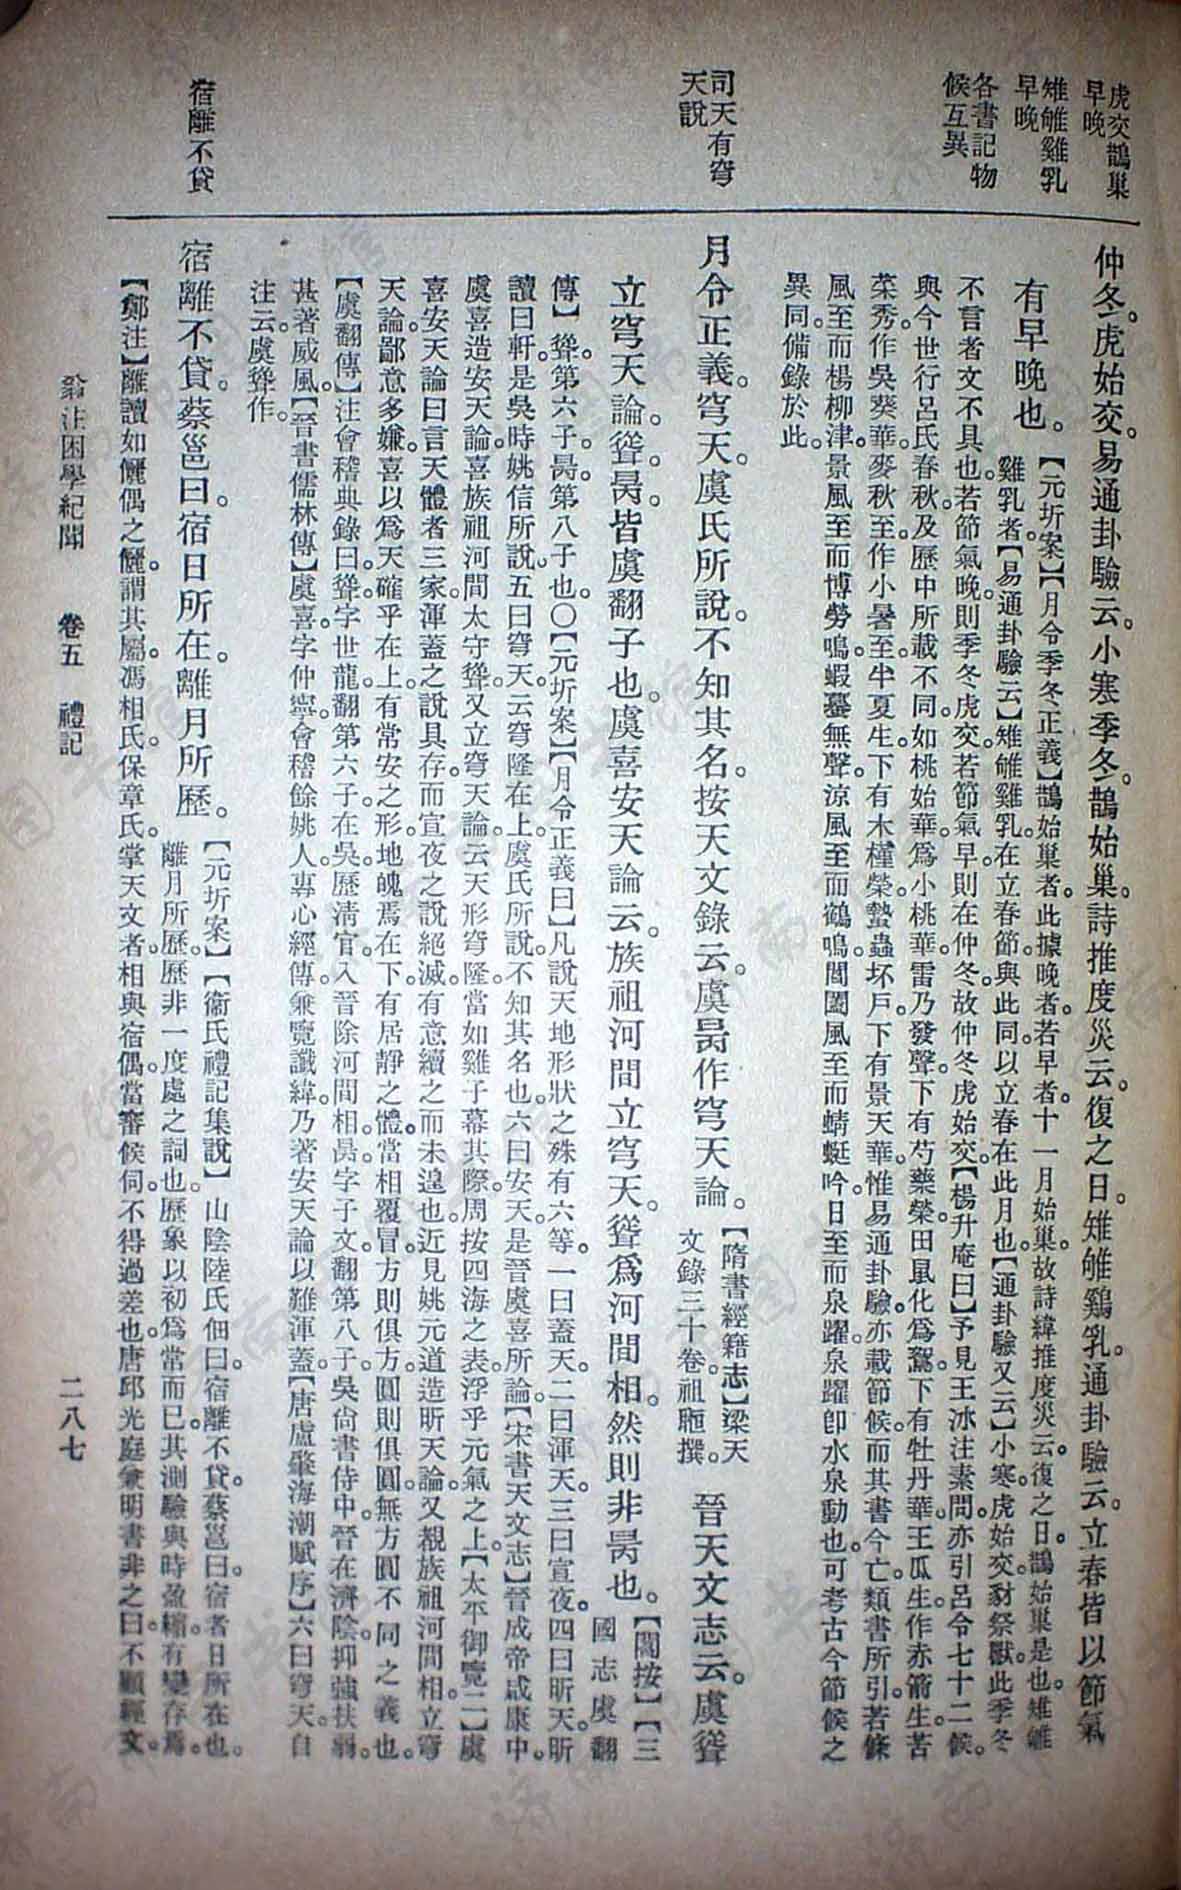 虎交鵲巢
早晚
雉雊雞乳
早晚
各書記物
候互異
司天有穹
天說
宿離不貸
仲冬虎始交。易通卦驗云。小寒季冬。鵲始巢。詩推度災云。復之日。雉雊雞乳。通卦驗云。立春皆以節氣
有早晚也。
【元圻案】【月令季冬正義】鵲始巢者。此據晚者。若早者。十一月始巢。故詩緯推度災云。復之日。鵲始巢是也。雉雊
雞乳者。【易通卦驗云】雉雊雞乳。在立春節。與此同。以立春在此月也。【通卦驗又云】小寒。虎始交。豺祭獸。此季冬
不言者。文不具也。若節氣晚。則季冬虎交。若節氣早。則在仲冬。故仲冬虎始交。【楊升庵曰】予見王冰注素問。亦引呂令七十二候。
與今世行呂氏春秋及歷中所載不同。如桃始華。爲小桃華。雷乃發聲。下有芍藥榮。田鼠化爲鴽。下有牡丹華。王瓜生。作赤箭生。苦
菜秀。作吳葵華。麥秋至。作小暑至。半夏生。下有木槿榮。蟄蟲坏戶。下有景天華。惟易通卦驗。亦載節候。而其書今亡。類書所引。若條
風至而楊柳津。景風至而博勞鳴。蝦蟇無聲。涼風至而鶴鳴。閶闔風至而蜻蜓吟。日至而泉躍。泉躍卽水泉動也。可考古今節候之
異同。備錄於此。
月令正義。穹天。虞氏所說。不知其名。按天文錄云。虞昺作穹天論。
【隋書經籍志】梁天
文錄三十卷。祖暅撰。
晉天文志云。虞聳
立穹天論。聳昺。皆虞翻子也。虞喜安天論云。族祖河間立穹天。聳爲河間相。然則非昺也。
【閻按】【三
國志虞翻
傳】聳。第六子。昺。第八子也。〇【元圻案】【月令正義曰】凡說天地形狀之殊。有六等。一曰蓋天。二曰渾天。三曰宣夜。四曰昕天。昕
讀曰軒。是吳時姚信所說。五曰穹天。云穹隆在上。虞氏所說。不知其名也。六曰安天。是晉虞喜所論。【宋書天文志】晉成帝咸康中。
虞喜造安天論。喜族祖河間太守聳。又立穹天論。云天形穹隆。當如雞子幕。其際周按四海之表。浮乎元氣之上。【太平御覽二】虞
喜安天論曰。言天體者三家。渾蓋之說具存。而宣夜之說絕滅。有意續之而未遑也。近見姚元道造昕天論。又覩族祖河間相立穹
天論。鄙意多嫌。喜以爲天確乎在上。有常安之形。地魄焉在下。有居靜之體。當相覆冒。方則俱方。圓則俱圓。無方圓不同之義也。
【虞翻傳】注會稽典錄曰。聳字世龍。翻第六子。在吳歷淸官。入晉除河間相。昺字子文。翻第八子。吳尙書侍中。晉在濟陰。抑強扶弱。
甚著威風。【晉書儒林傳】虞喜。字仲寧。會稽餘姚人。專心經傳。兼覽讖緯。乃著安天論以難渾蓋。【唐盧肇海潮賦序】六曰穹天。自
注云。虞聳作。
宿離不貸。蔡邕曰。宿日所在。離月所歷。
【元圻案】【衞氏禮記集說】山陰陸氏佃曰。宿離不貸。蔡邕曰。宿者日所在也。
離月所歷。歷非一度處之詞也。歷象以初爲常而已。其測驗與時盈縮。有變存焉。
【鄭注】離讀如儷偶之儷。謂其屬馮相氏。保章氏。掌天文者。相與宿偶。當審候伺。不得過差也。唐邱光庭兼明書非之曰。不顧經文。
翁注困學紀聞　卷五　禮記　二八七